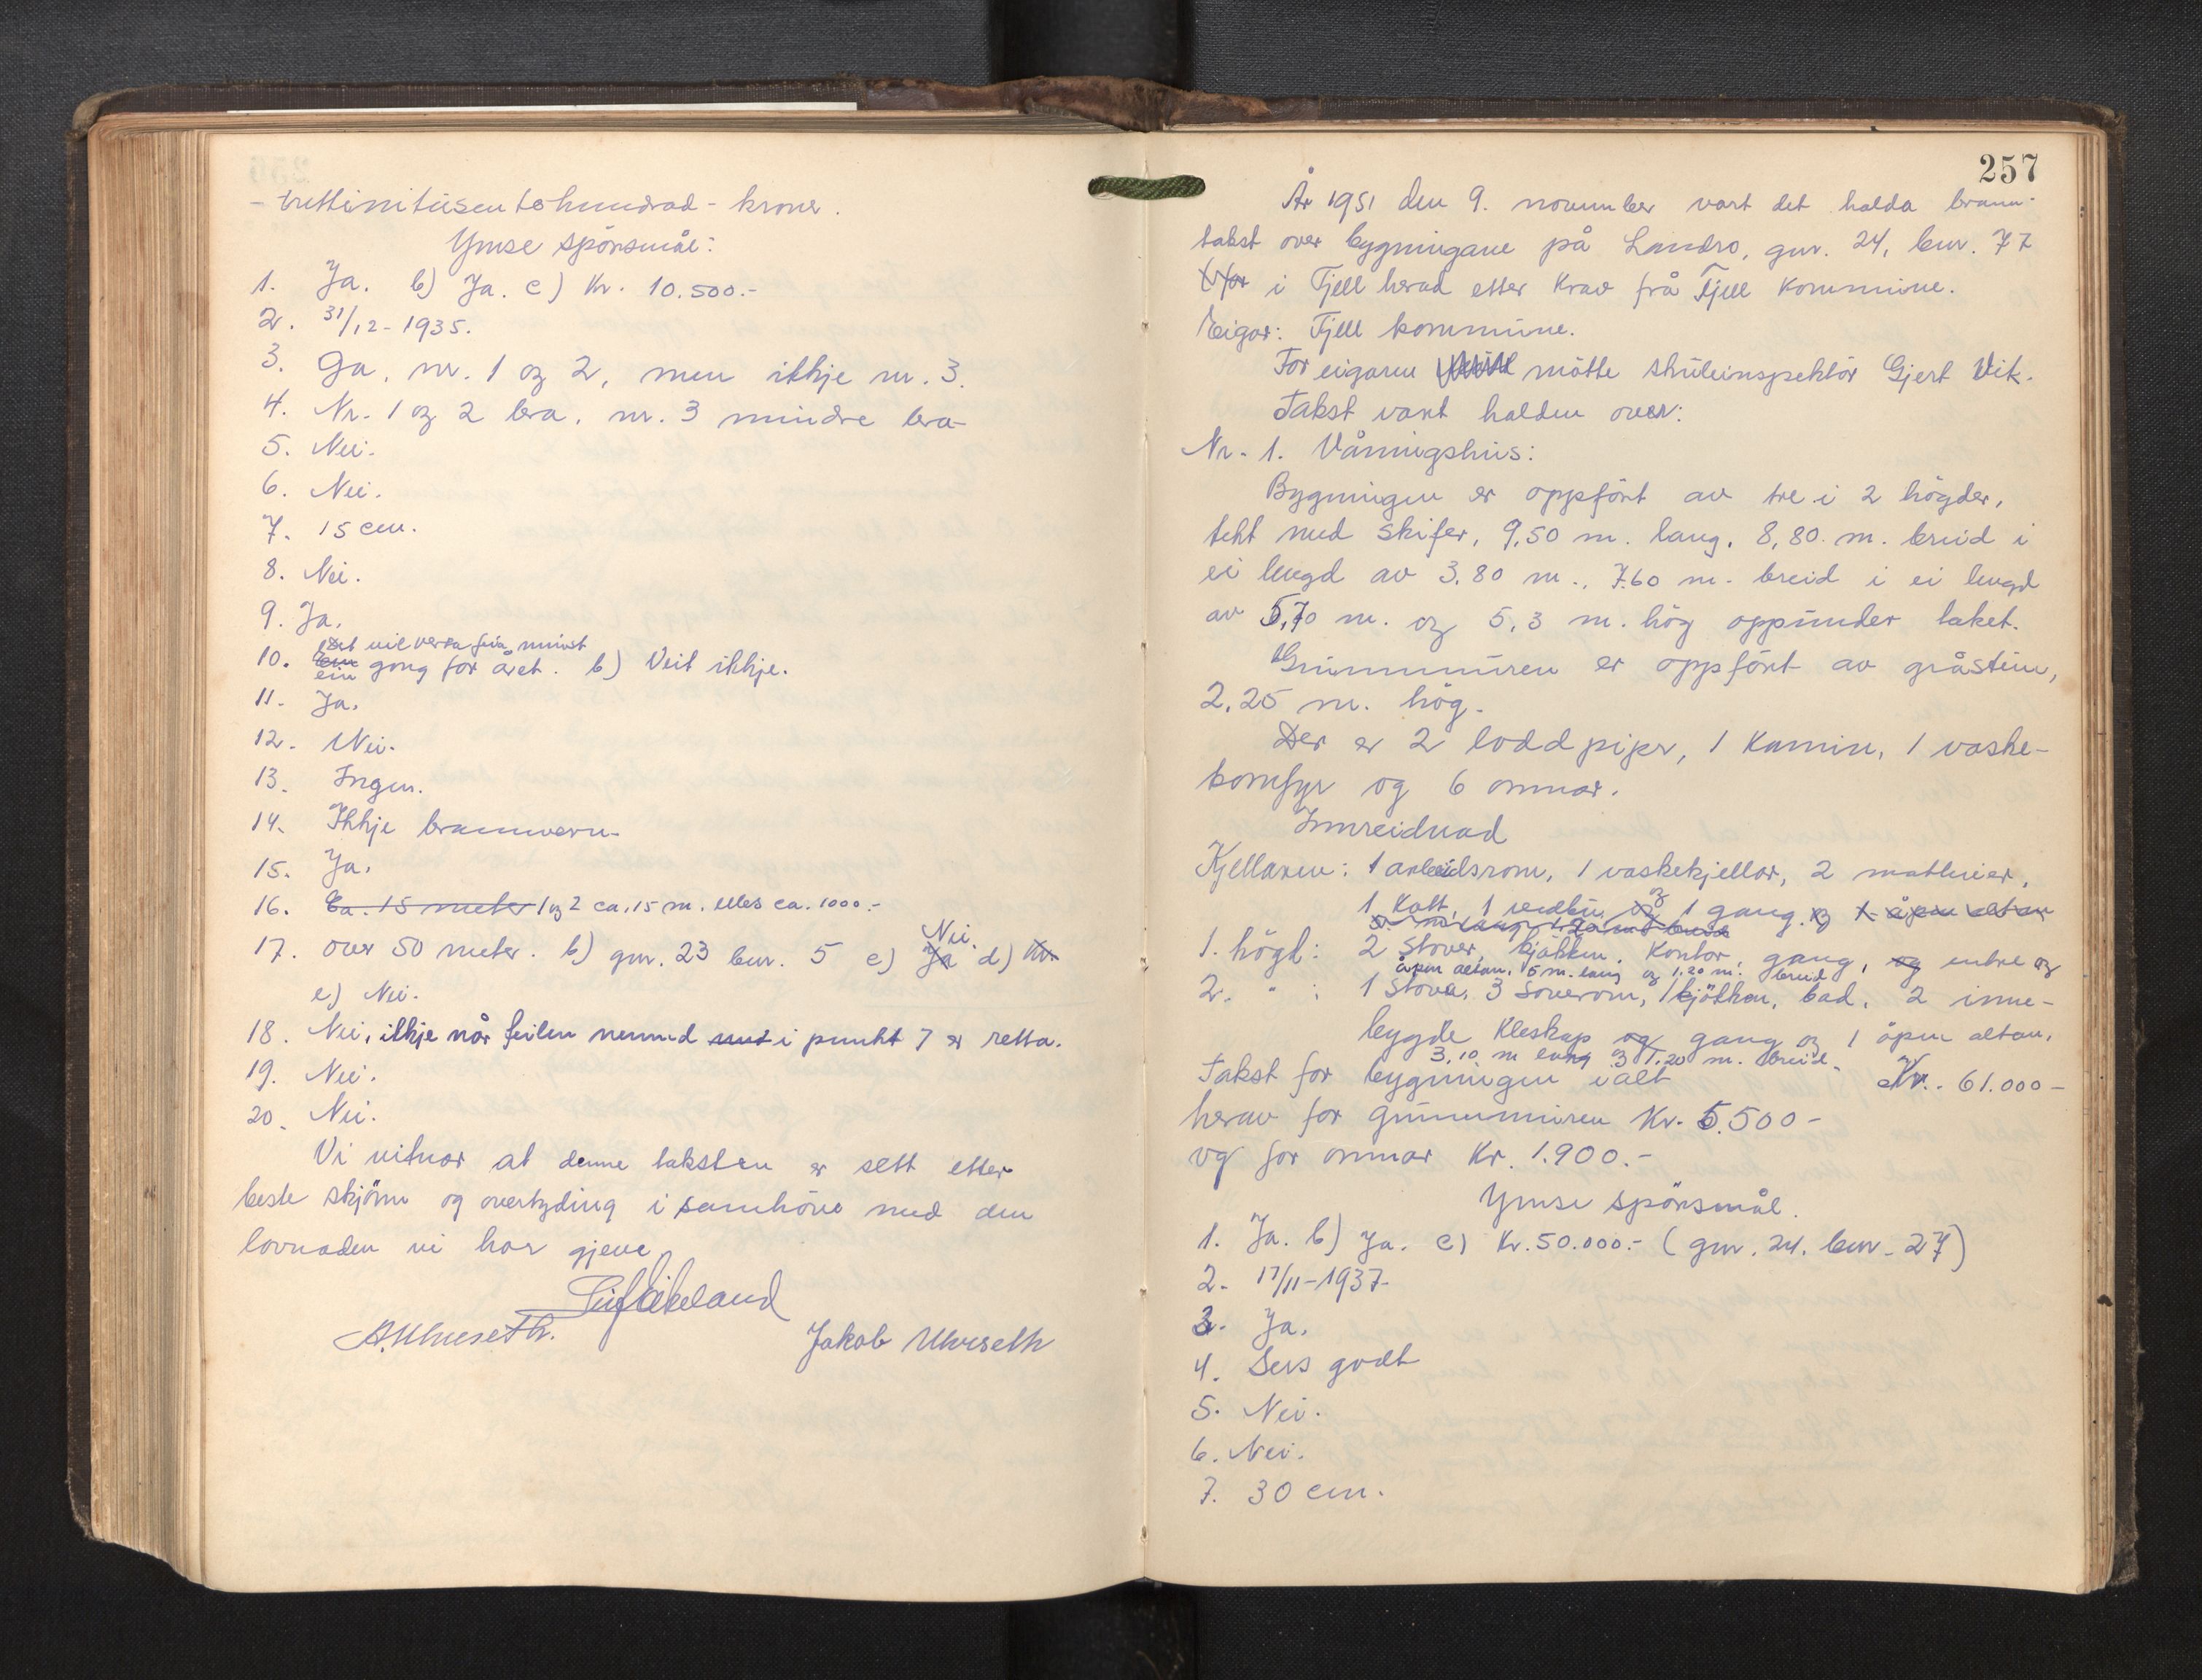 - trettinitusen tohundrad - kroner.
Ymse spörsmål:
1. Ja. b) Ja. c) Kr. 10.500.-
2. 31/12 - 1935.
3. Ja, nr. 1 og 2, men ikkje nr. 3.
4. Nr. 1 og 2 bra, nr. 3 mindre bra
5. Nei.
6. Nei.
7. 15 cm.
8. Nei.
9. Ja.
Det vil verta feia minst
10. ein gong for året. b) Veit ikkje.
11. Ja.
12. Nei.
13. Ingen.
14. Ikkje brannvern.
15. Ja.
16. Ca. 15 meter 1 og 2 ca. 15 m. elles ca. 1000.-
Nei.
17. over 50 meter. b) gnr. 23 bnr. 5 c) Ja d) Kr.
e) Nei.
18. Nei, ikkje når feilen nemnd i punkt 7 er retta.
19. Nei.
20. Nei.
Vi vitnar at denne taksten er sett etter
beste skjönn og overtyding i samhöve med den
lovnaden vi har gjeve
Leif Ekeland
A. Ulveseth.
Jakob Ulveseth
257
År 1951 den 9. november vart det halda brann-
takst over bygningane på Landro, gnr. 24, bnr. 77
i Fjell herad etter krav frå Fjell kommune.
Eigar: Fjell kommune.
For eigaren møtte skuleinspektör Gjert Vik.
Takst vart halden over:
Nr. 1. Våningshus:
Bygningen er oppfört av tre i 2 högder,
tekt med skifer, 9,50 m. lang, 8,80 m. breid i
ei lengd av 3,80 m., 7.60 m. breid i ei lengd
av 5,70 m. og 5,3 m. hög oppunder taket.
Grunnmuren er oppfört av gråstein,
2,25 m. hög.
Der er 2 loddpiper, 1 kamin, 1 vaske-
komfyr og 6 omnar.
Innreidnad
Kjellaren: 1 arbeidsrom, 1 vaskekjellar, 2 matbuer,
1 kott, 1 vedbu, og 1 gang. og 1 åpen altan
1. högd: 2 stover, kjökken, kontor, gang, og entre og
åpen altan, 5 m. lang og 1,20 m. breid
2. " : 1 stova, 3 soverom, 1 kjökken, bad, 2 inne-
bygde kleskap og gang og 1 åpen altan,
3,10 m lang og 1,20 m. breid.
Takst for bygningen ialt Kr. 61.000-
herav for grunnmuren Kr. 5.500-
og for omnar Kr. 1.900.-
Ymse spörsmål.
1. Ja. b) Ja. c) Kr. 50.000.- (gnr. 24. bnr. 27)
2. 17/11-1937.
3. Ja.
4. Sers godt
5. Nei.
6. Nei.
7. 30 cm.